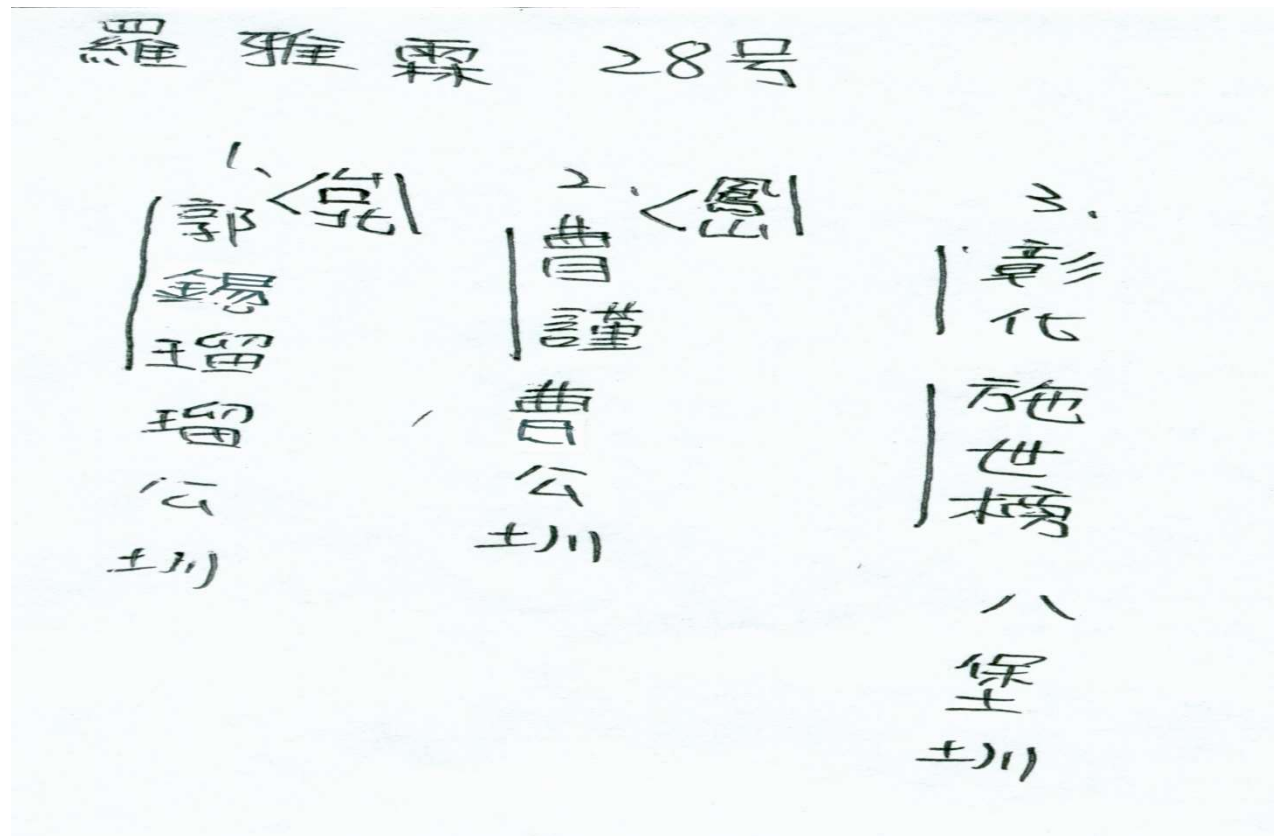 羅雅霖 28号
1、<台北| 郭錫瑠瑠公圳
2、<鳳山| 曹謹曹公圳
3. 彰化施世榜八堡圳